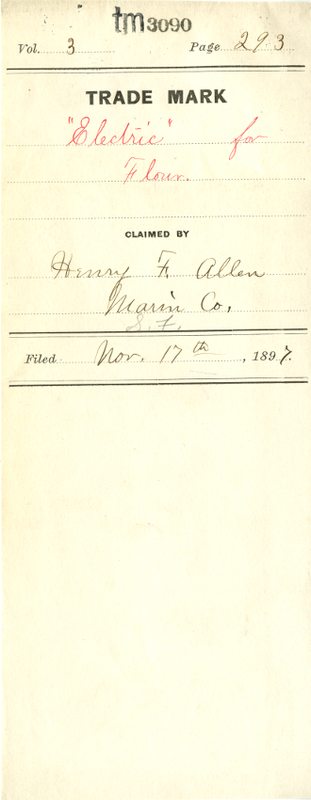 tm3090
Vol. 3 Page 293
TRADE MARK
"Electric" for
Flour.
CLAIMED BY
Henry F. Allen
Marin Co.
S. F.
Filed Nov. 17th, 1897.